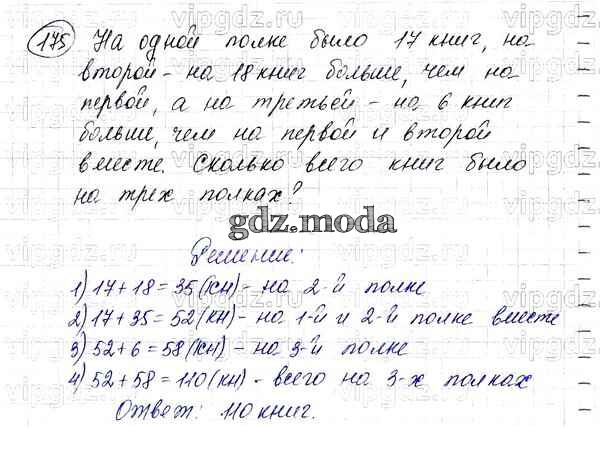 175 На одной полке было 17 книг, на
второй - на 18 книг больше, чем на
первой, а на третьей - на 6 книг
больше, чем на первой и второй
вместе. Сколько всего книг было
на трех полках?
gdz.moda
Решение:
1) 17 + 18 = 35 (кн) - на 2-й полке
2) 17 + 35 = 52 (кн) - на 1-й и 2-й полке вместе
3) 52 + 6 = 58 (кн) - на 3-й полке
4) 52 + 58 = 110 (кн) - всего на 3-х полках
Ответ: 110 книг.